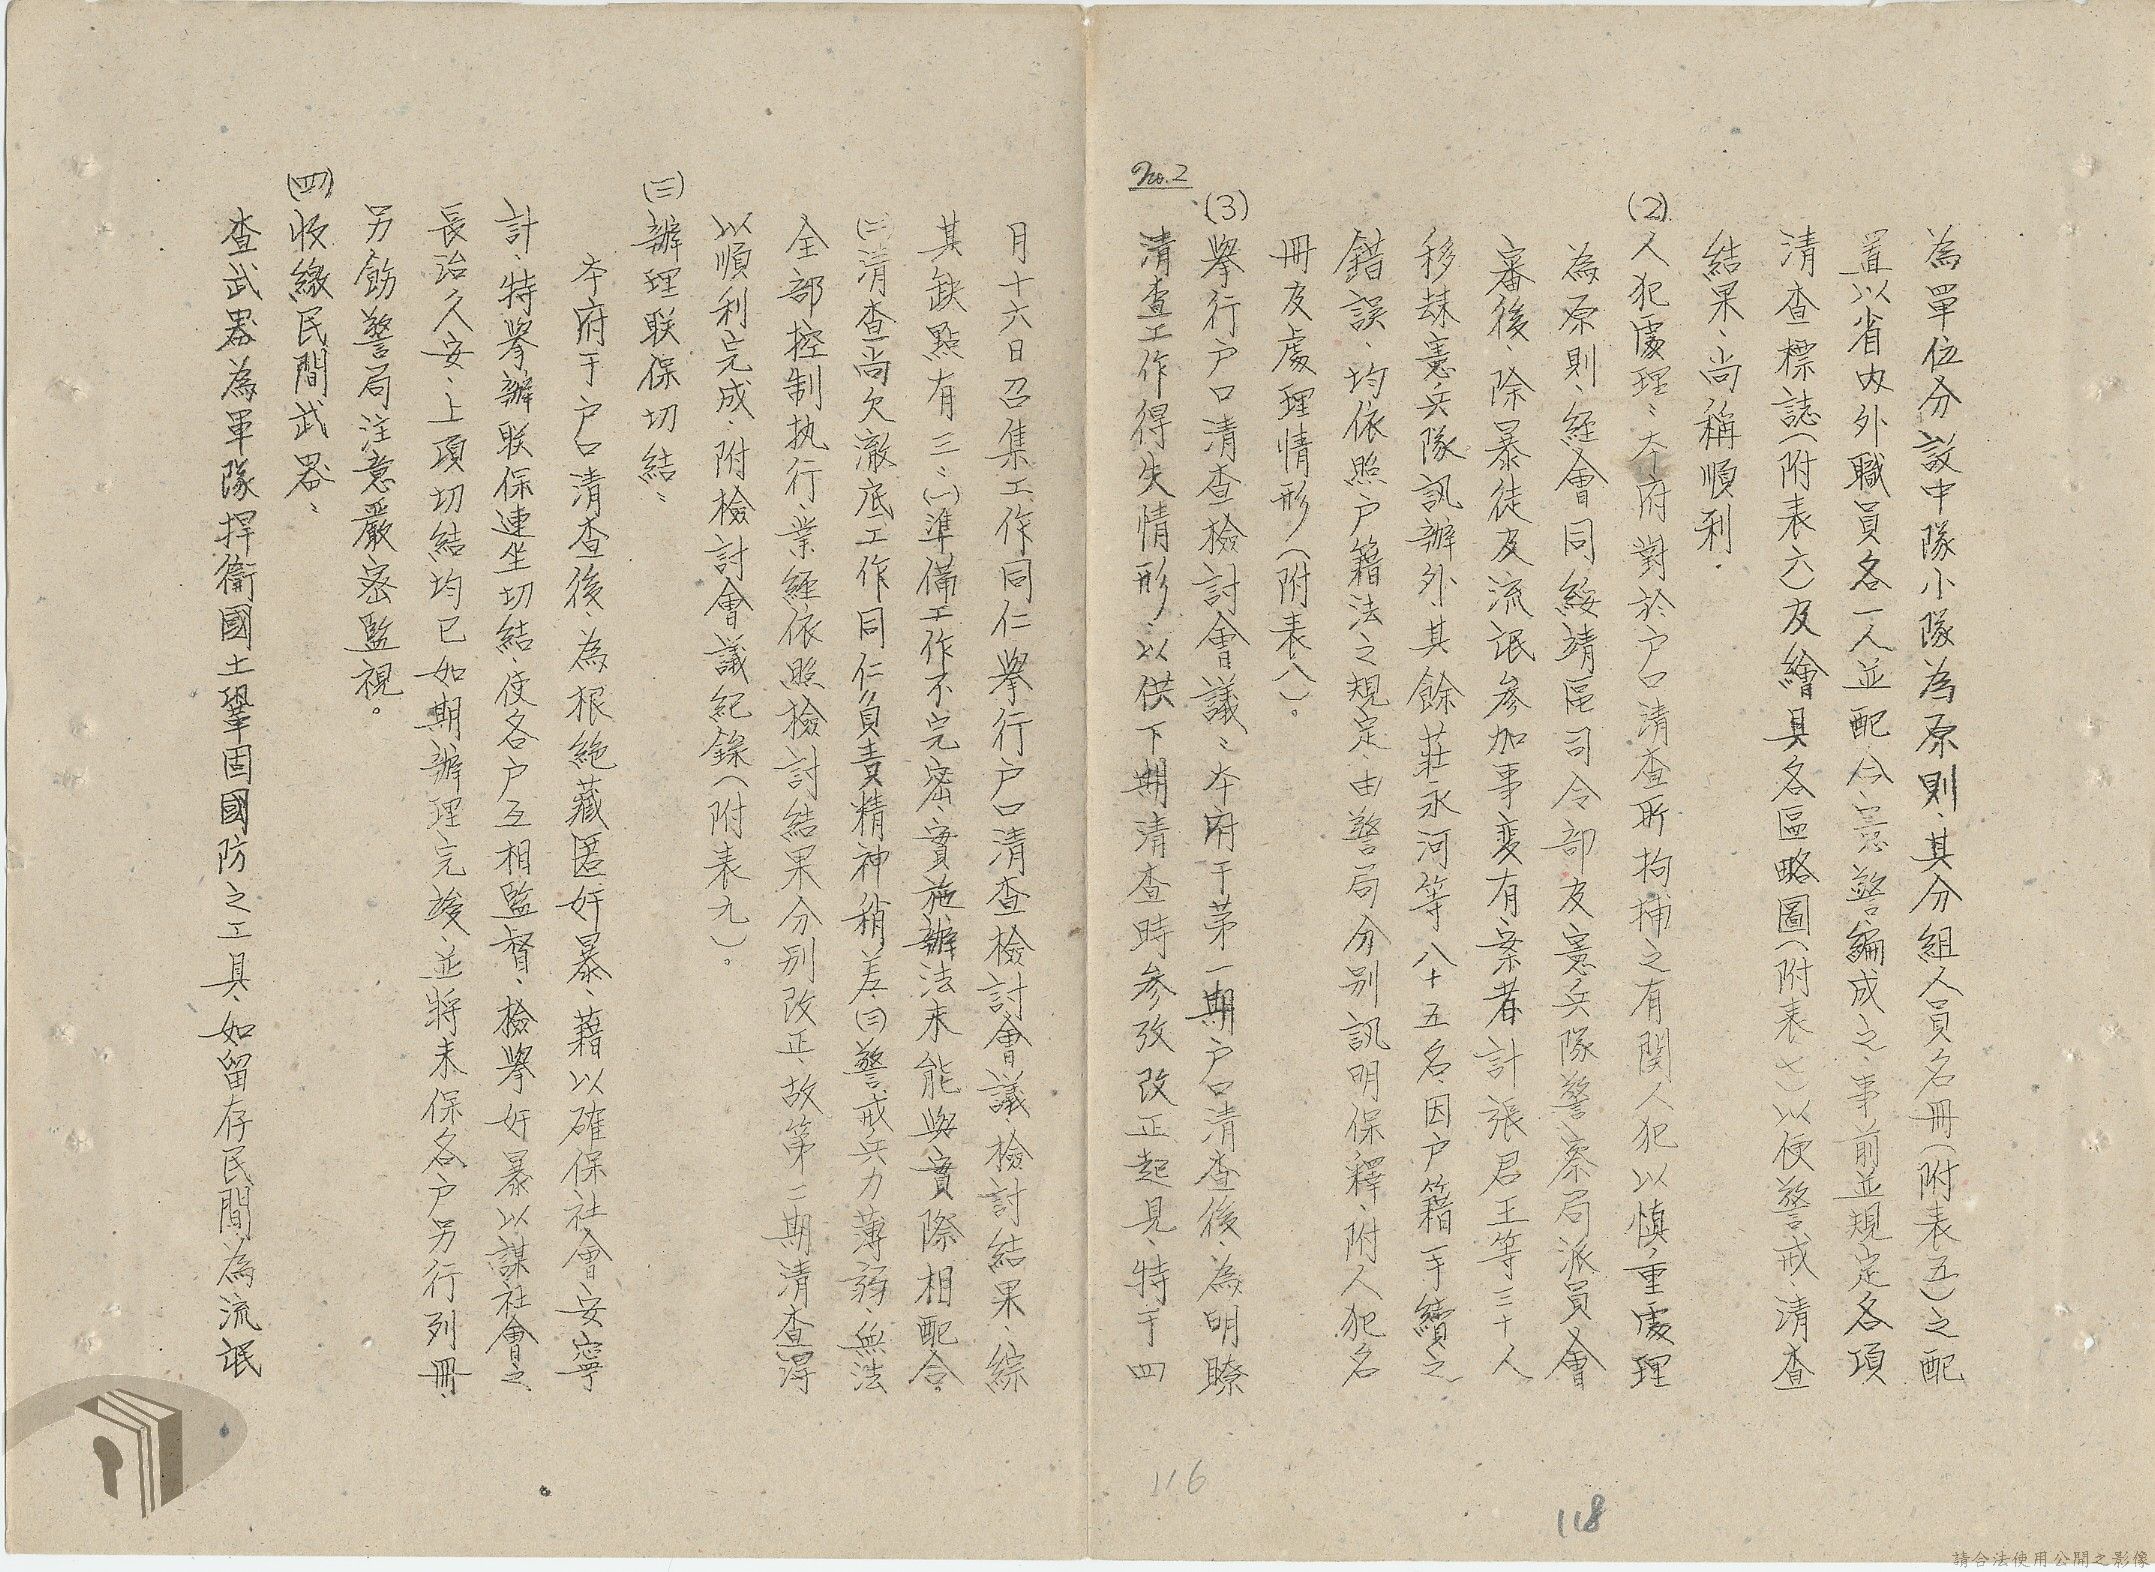 為單位分設中隊小隊為原則、其分組人員名冊(附表五)之配
置以省內外職員各一人並配合憲警編成之、事前並規定各項
清查標誌(附表六)及繪具各區略圖(附表七)以便警戒、清查
結果、尚稱順利.
(2)人犯處理:本府對於户口清查所拘捕之有関人犯以慎重處理
為原則、經會同綏靖區司令部及憲兵隊警察局派員會
審後、除暴徒及流氓參加事変有案者計張君王等三十人
移隸憲兵隊訊辦外、其餘莊永河等八十五名、因户籍手續之
錯誤、均依照户籍法之規定、由警局分别訊明保釋、附人犯名
冊及處理情形(附表八)。
(3)舉行户口清查檢討會議:本府于苐一期户口清查後、為明瞭
No.2
清查工作得失情形、以供下期清查時参攷改正起見、特于四
月十六日召集工作同仁舉行户口清查檢討會議、檢討結果、綜
其缺點有三:(一)準備工作不完密、實施辦法未能與實際相配合、
(二)清查尚欠澈底工作同仁負責精神稍差、(三)警戒兵力薄弱無法
全部控制执行、業經依照檢討結果分别改正、故第二期清查得
以順利完成、附檢討會議紀錄(附表九)。
(三)辦理联保切結:
本府于户口清查後、為根絶藏匿奸暴、藉以確保社會安寧
計、特舉辦联保連坐切結、使各户互相監督、檢舉奸暴以謀社會之
長治久安、上項切結均已如期辦理完竣、並將未保各户另行列冊、
另飭警局注意嚴密監視。
(四)收繳民間武器:
查武器為軍隊捍衞國土鞏固國防之工具、如留存民間、為流氓
116
118
請合法使用公開之影像